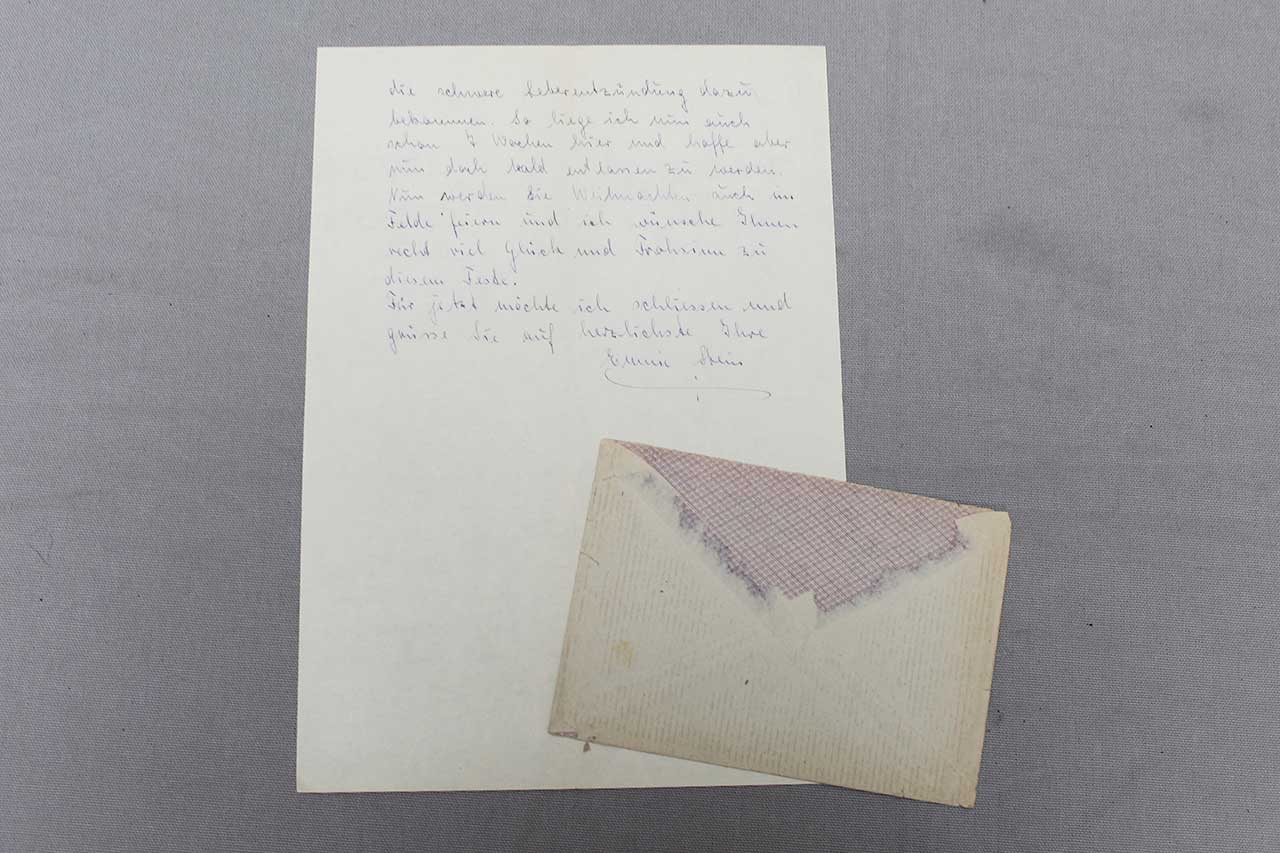 die schwere Leberentzündung dazu
bekommen. So liege ich nun auch
schon 7 Wochen hier und hoffe aber
nun doch bald entlassen zu werden.
Nun werden Sie Weihnachten auch im
Felde feiern und ich wünsche Ihnen
recht viel Glück und Frohsinn zu
diesem Feste.
Für jetzt möchte ich schliessen und
grüsse Sie auf herzlichste Ihre